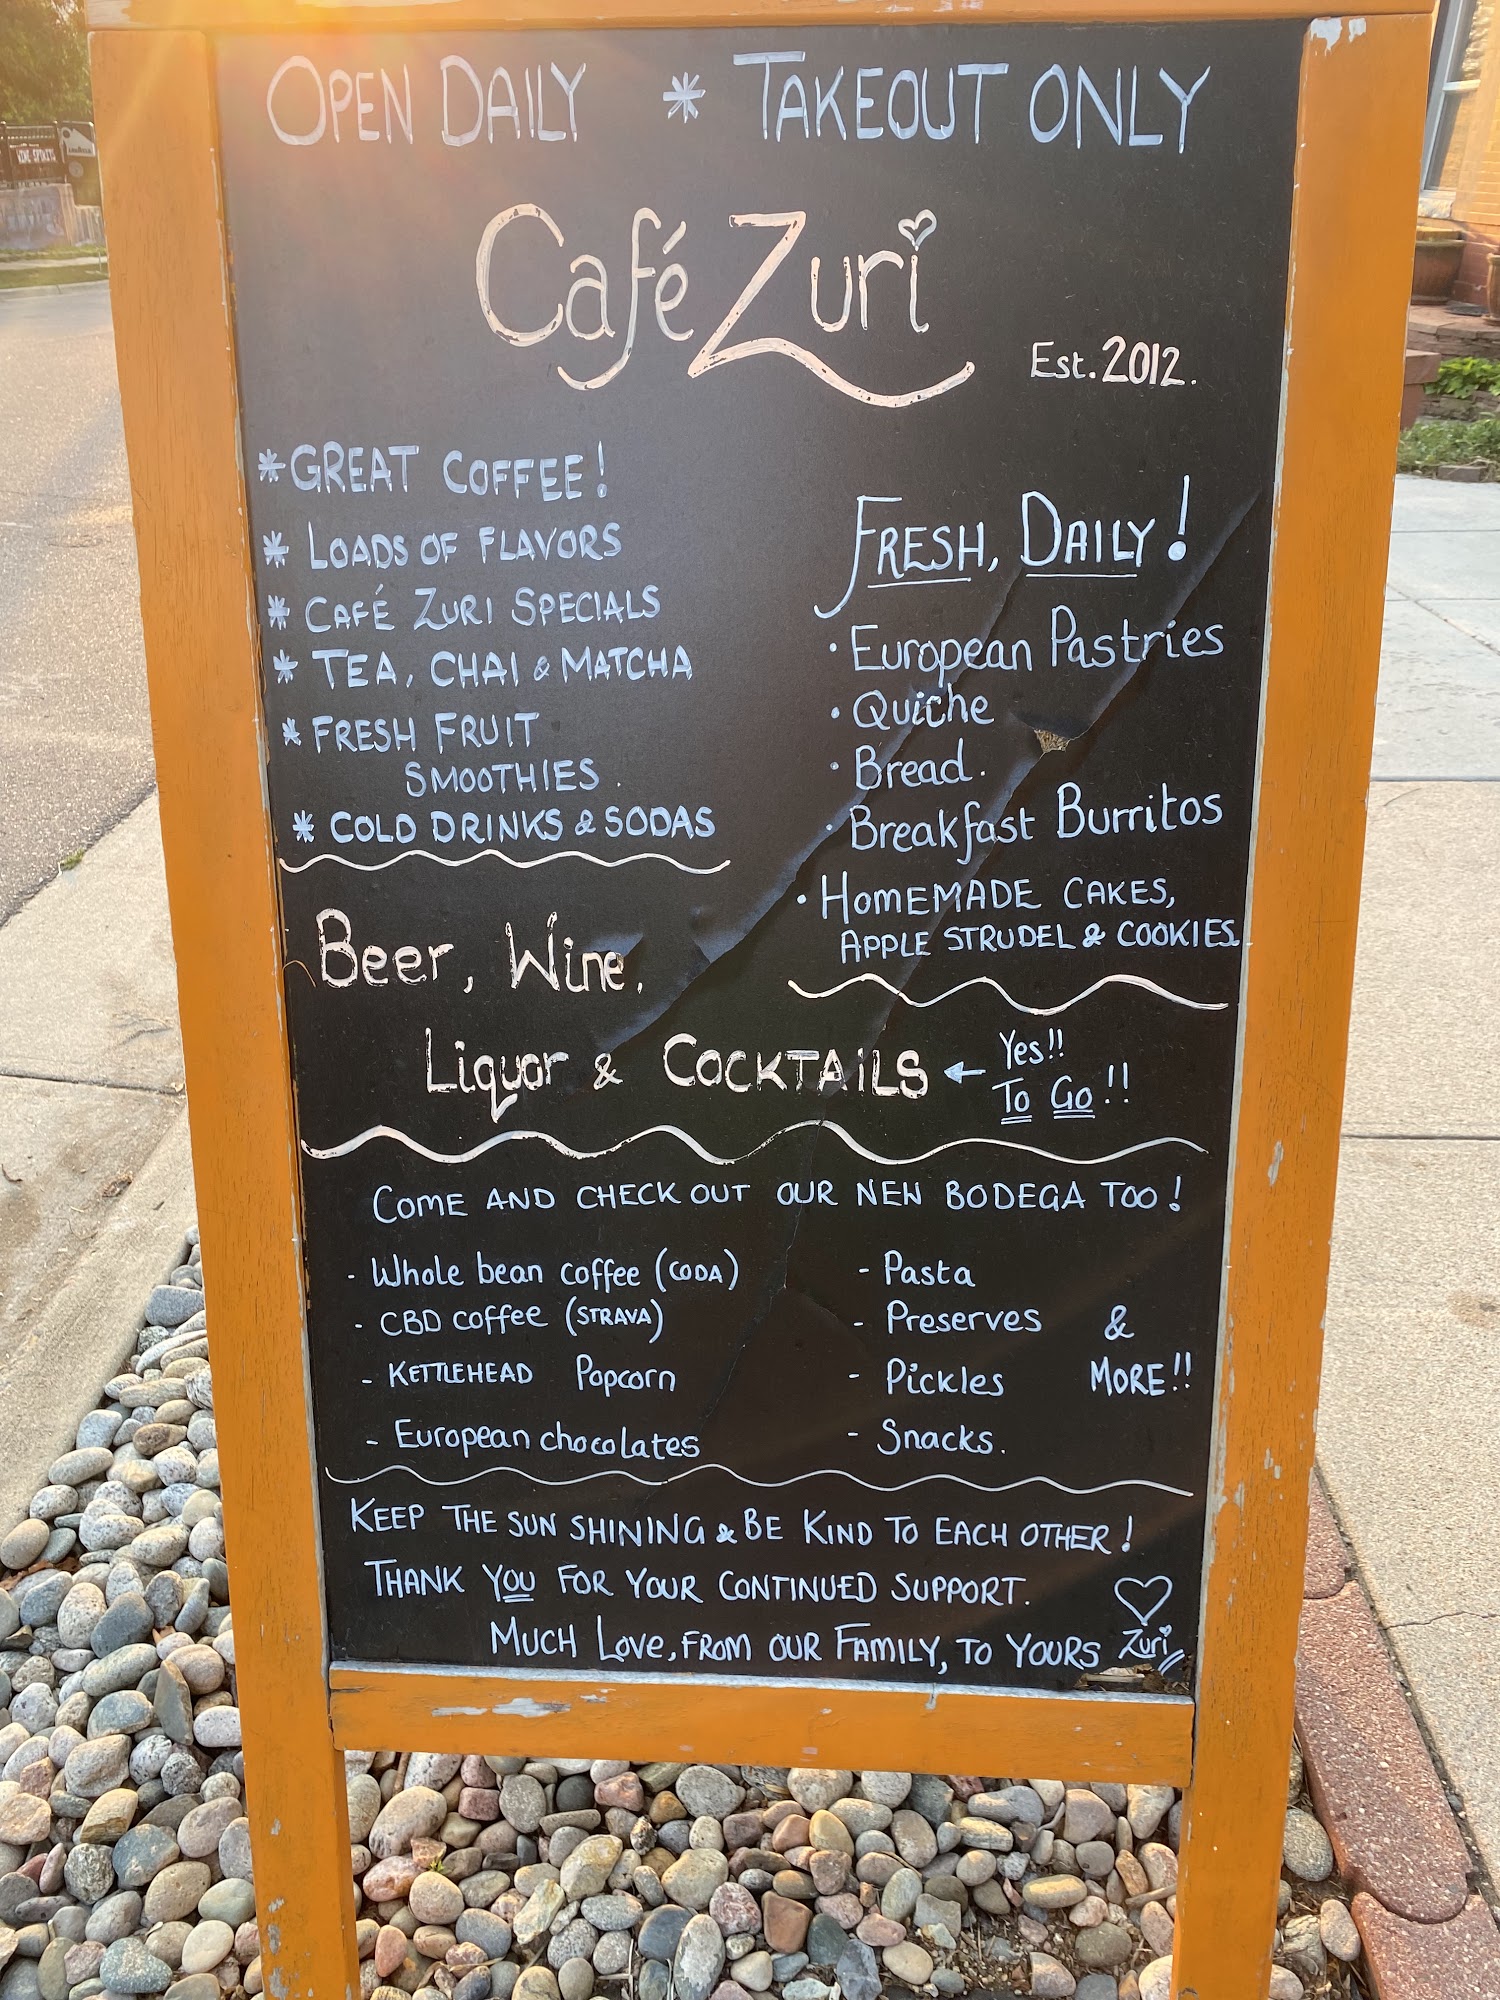 OPEN DAILY * TAKEOUT ONLY
Café Zuri
Est. 2012.
* GREAT COFFEE!
* LOADS OF FLAVORS
* CAFÉ ZURI SPECIALS
* TEA, CHAI & MATCHA
* FRESH FRUIT
SMOOTHIES.
* COLD DRINKS & SODAS
FRESH, DAILY!
· European Pastries
· Quiche
· Bread.
· Breakfast Burritos
· HOMEMADE CAKES,
APPLE STRUDEL & COOKIES
Beer, Wine,
Liquor & COCKTAILS ← Yes!!
To Go!!
COME AND CHECK OUT OUR NEW BODEGA TOO!
- Whole bean coffee (CODA)
- CBD coffee (STRAVA)
- KETTLEHEAD Popcorn
- European chocolates
- Pasta
- Preserves
- Pickles
- Snacks.
&
MORE!!
KEEP THE SUN SHINING & BE KIND TO EACH OTHER!
THANK YOU FOR YOUR CONTINUED SUPPORT.
MUCH LOVE, FROM OUR FAMILY, TO YOURS
Zuri
WINE SPIRITS